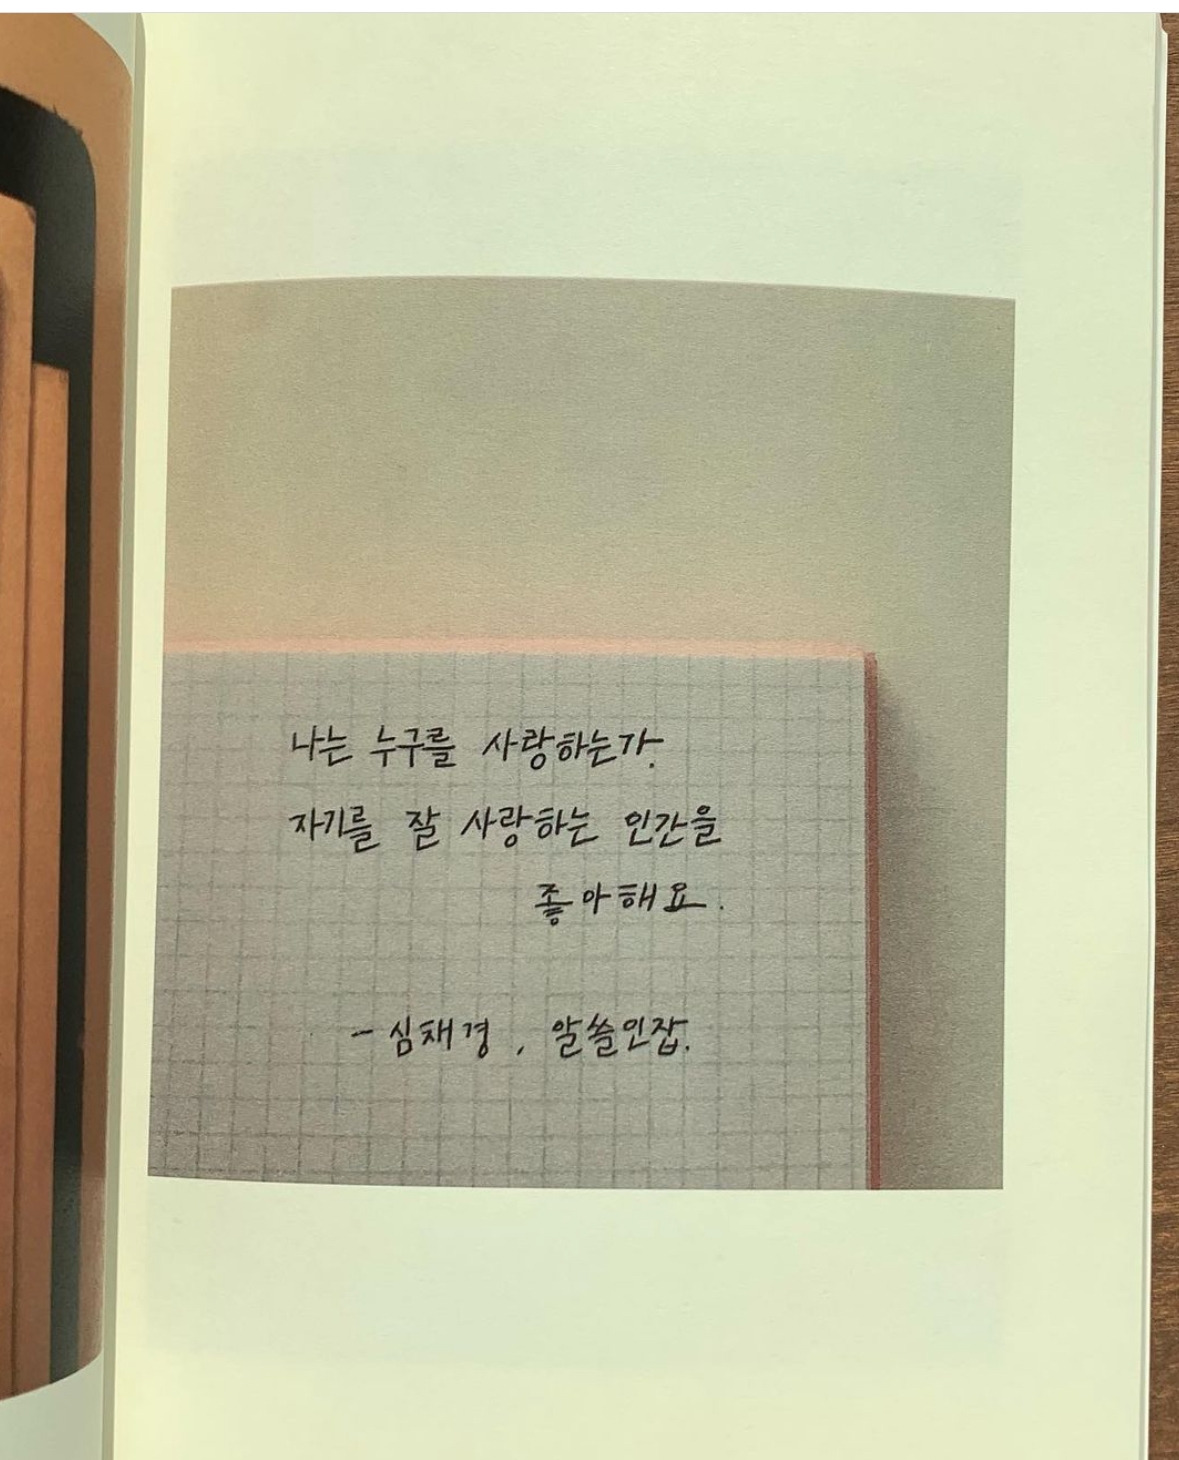 나는 누구를 사랑하는가.
자기를 잘 사랑하는 인간을
좋아해요.
- 심채경, 알쓸인잡.